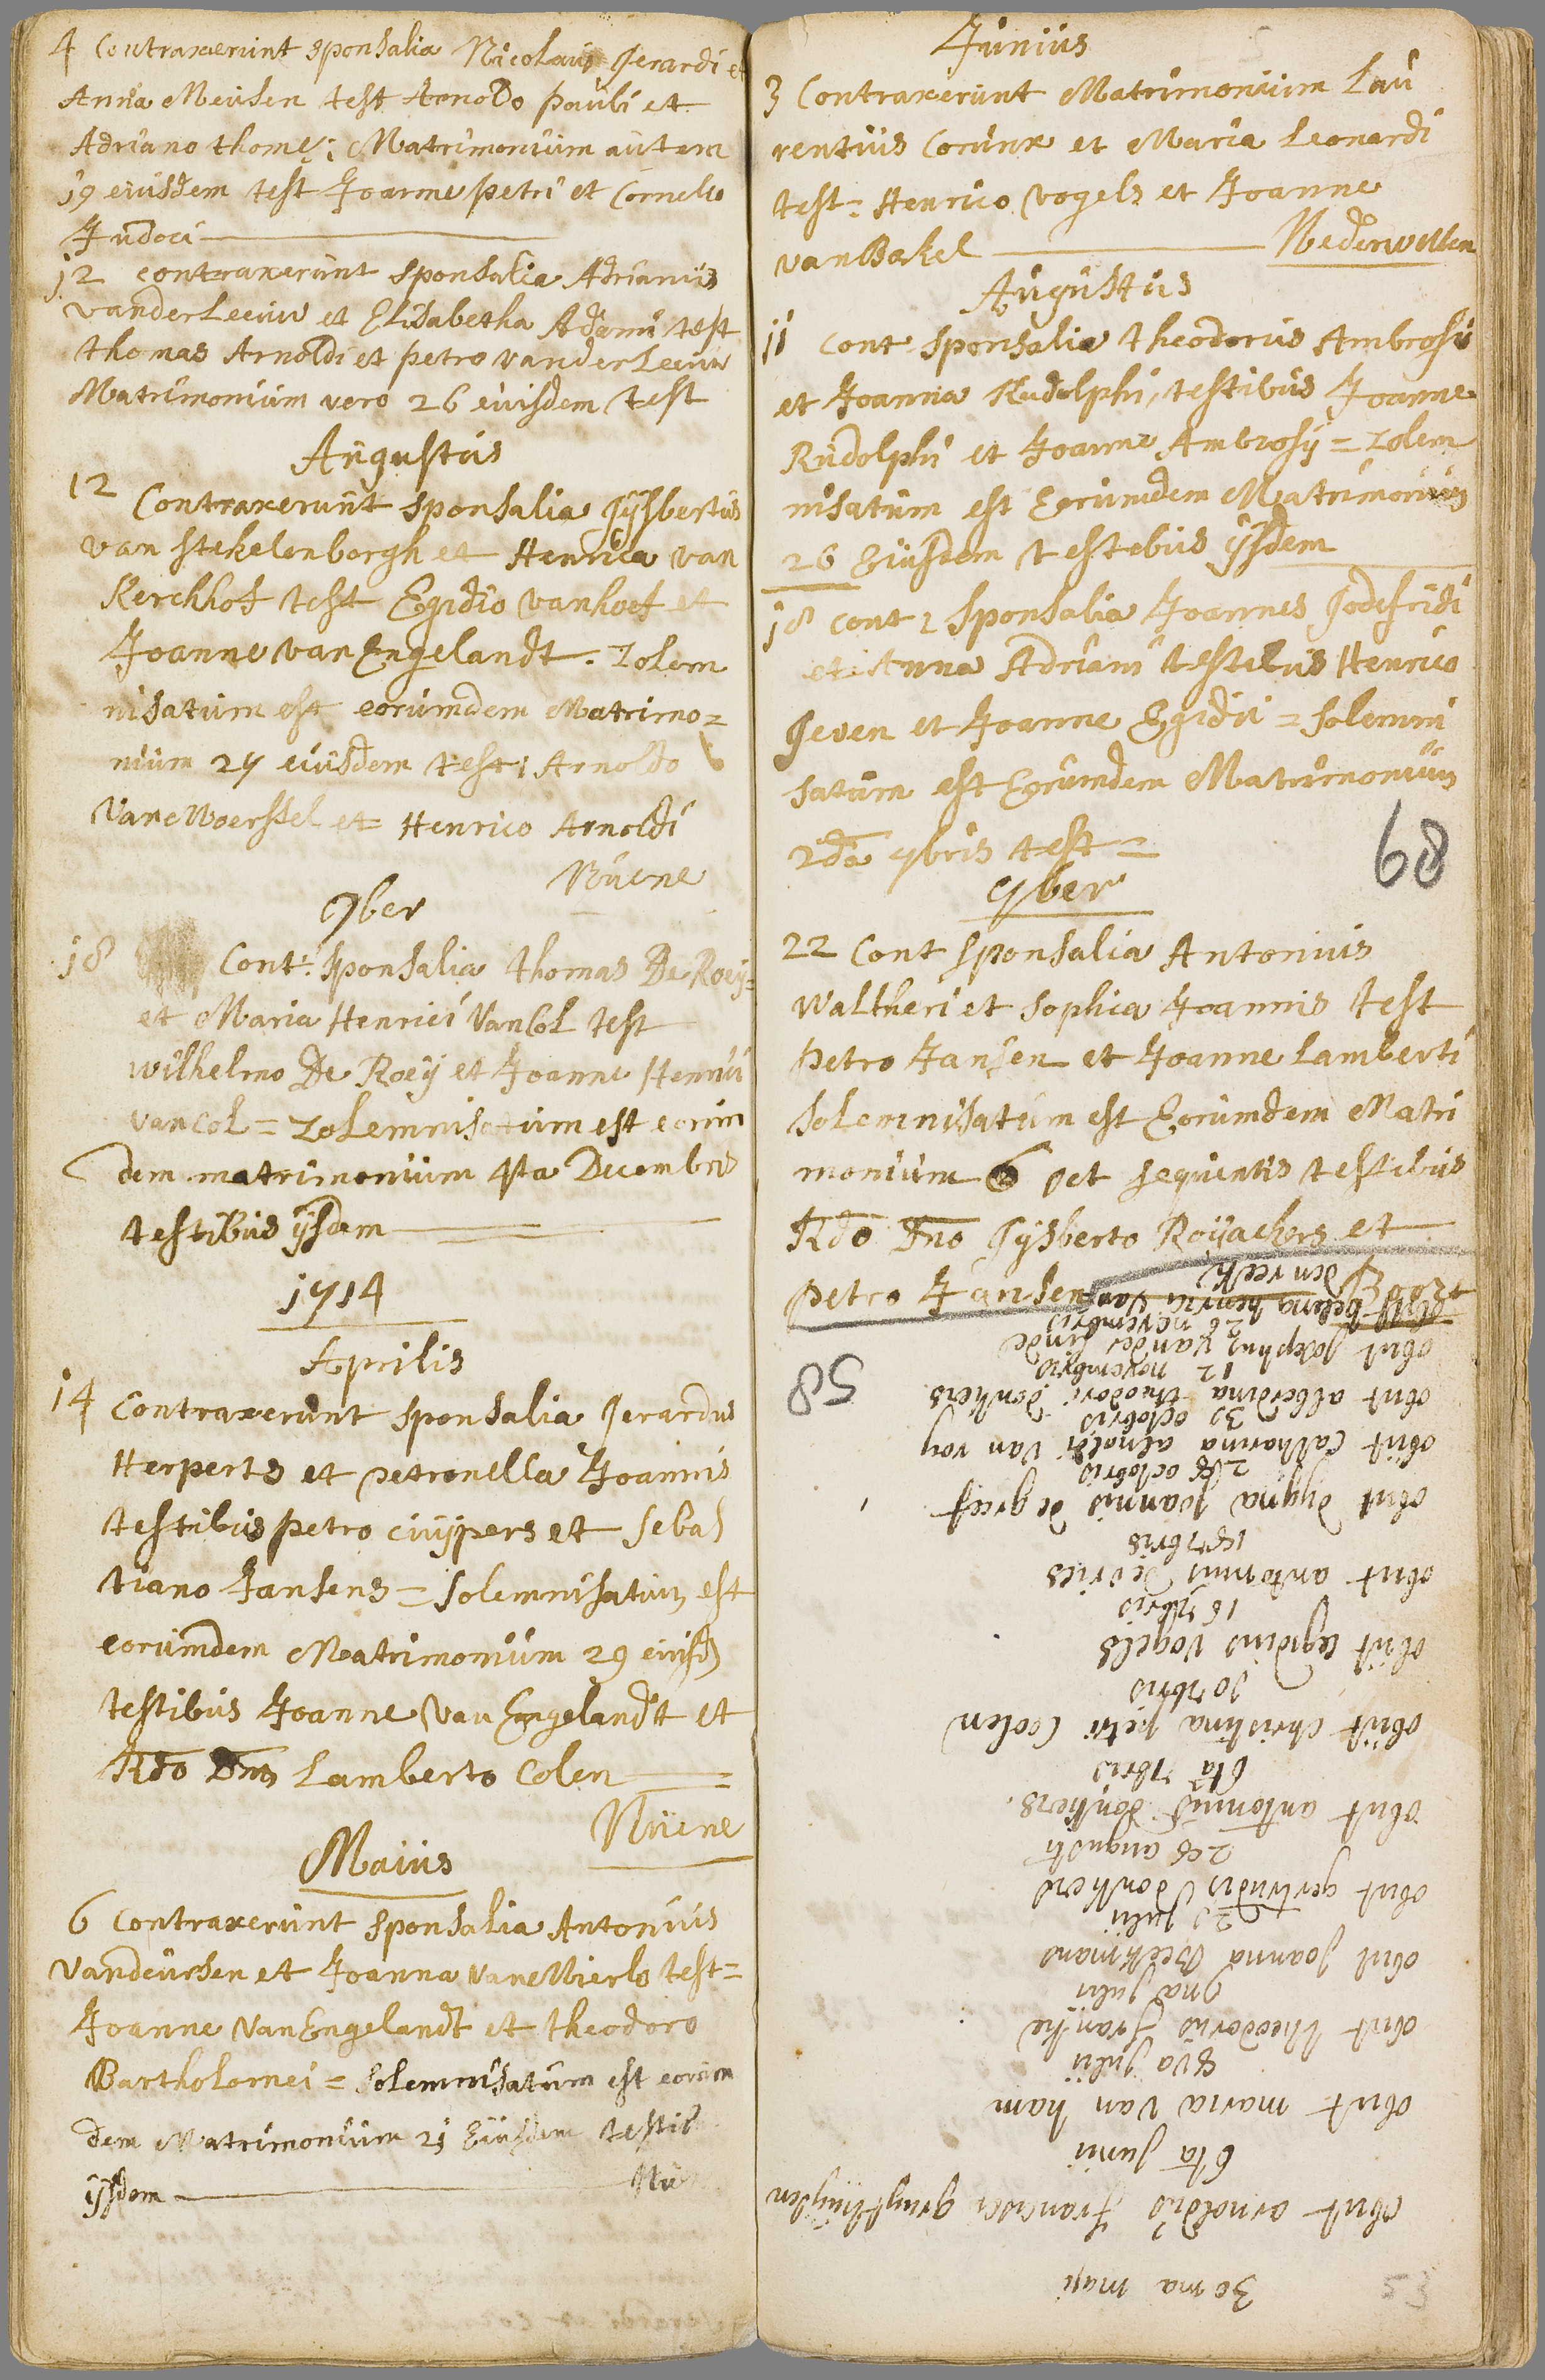 4 Contraxerunt sponsalia Nicolaus Gerardi et
Anna Meusen test Arnoldo pauli et
Adriano thome; Matrimonium autem
19 eiusdem test Joanne petri et Cornelio
Judoci
12 contraxerunt sponsalia Adrianus
vander Leeuw et Elisabetha Adami test
thomas Arnoldi et petro vander Leeuw
Matrimonium vero 26 eiusdem test
Augustus
12 Contraxerunt sponsalia Gijsbertus
van stekelenborgh et Henrica van
Kerckhof test Egidio vanhoef et
Joanne van Engelandt. Zolem
nisatum est eorumdem Matrimo=
nium 27 eiusdem test: Arnoldo
Van Moerssel et Henrico Arnoldi
Nüene
9ber
18 Cont: sponsalia thomas De Roeij=
et Maria Henrici Van Col test
wilhelmo De Roeij et Joanne Henrici
van Col = Zolemnisatum est eorum
dem matrimonium 4ta Decembris
testibus ijsdem
1714
Aprilis
14 Contraxerunt sponsalia Gerardus
Herperts et petronella Joannis
testibus petro cuijpers et sebas
tiano Jansens = solemnisatum est
eorumdem Matrimonium 29 eiusd
testibus Joanne Van Engelandt et
Rdo Dno Lamberto Colen
Nüene
Maius
6 Contraxerunt sponsalia Antonius
Vandeursen et Joanna Van Mierlo test=
Joanne Van Engelandt et theodoro
Bartholomei = solemnisatum est eorum
dem Matrimonium 21 Eiusdem testib
ijsdem Nü
Junius
3 Contraxerunt Matrimonium Lau
rentius Corinx et Maria Leonardi
test= Henrico Vogels et Joanne
van Bakel Nederwetten
Augustus
11 Cont sponsalia theodorus Ambrosii
et Joanna Rudolphi, testibus Joanne
Rudolphi et Joanne Ambrosij = Zolem
nisatum est Eorumdem Matrimonium
26 Eiusdem testebus ijsdem
18 cont: sponsalia Joannes Godefridi
et Anna Adriani testibus Henrico
Geven et Joanne Egidii = solemni
satum est Eorumdem Matrimonium
2da 7bris test=
68
9ber
22 Cont sponsalia Antonius
Waltheri et Sophia Joannis test
petro Jansen et Joanne Lamberti
solemnisatum est Eorumdem Matri
monium 6 Xet sequentis testibus
Rdo Dno Gijsberto Roijackers et
petro Jansen
30 ma maji
obiit arnoldus Francisci gruythuijsen
6ta Junii
obiit maria van ham
8va Julii
obiit theodorus Franssen
9na Julii
obiit Joanna Beekmans
20 Julii
obiit gertrudis donkers
28 augusti
obiit antonius donkers.
6ta 7bris
obiit christina petri Coolen
10 7bris
obiit Egidius Vogels
16 7bris
obiit antonius De vries
18 7bris
obiit dijgna Joannis de greef
28 octobris
obiit Catharina arnoldi van roy
30 octobris
obiit alberdina theodori donkers
12 novembris
obiit Josephus vander linde
26 novembris
obiit helena henrici van
den reeck
58
53